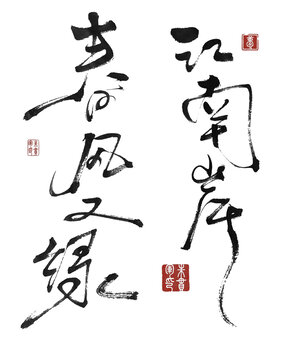 春风又绿
江南岸